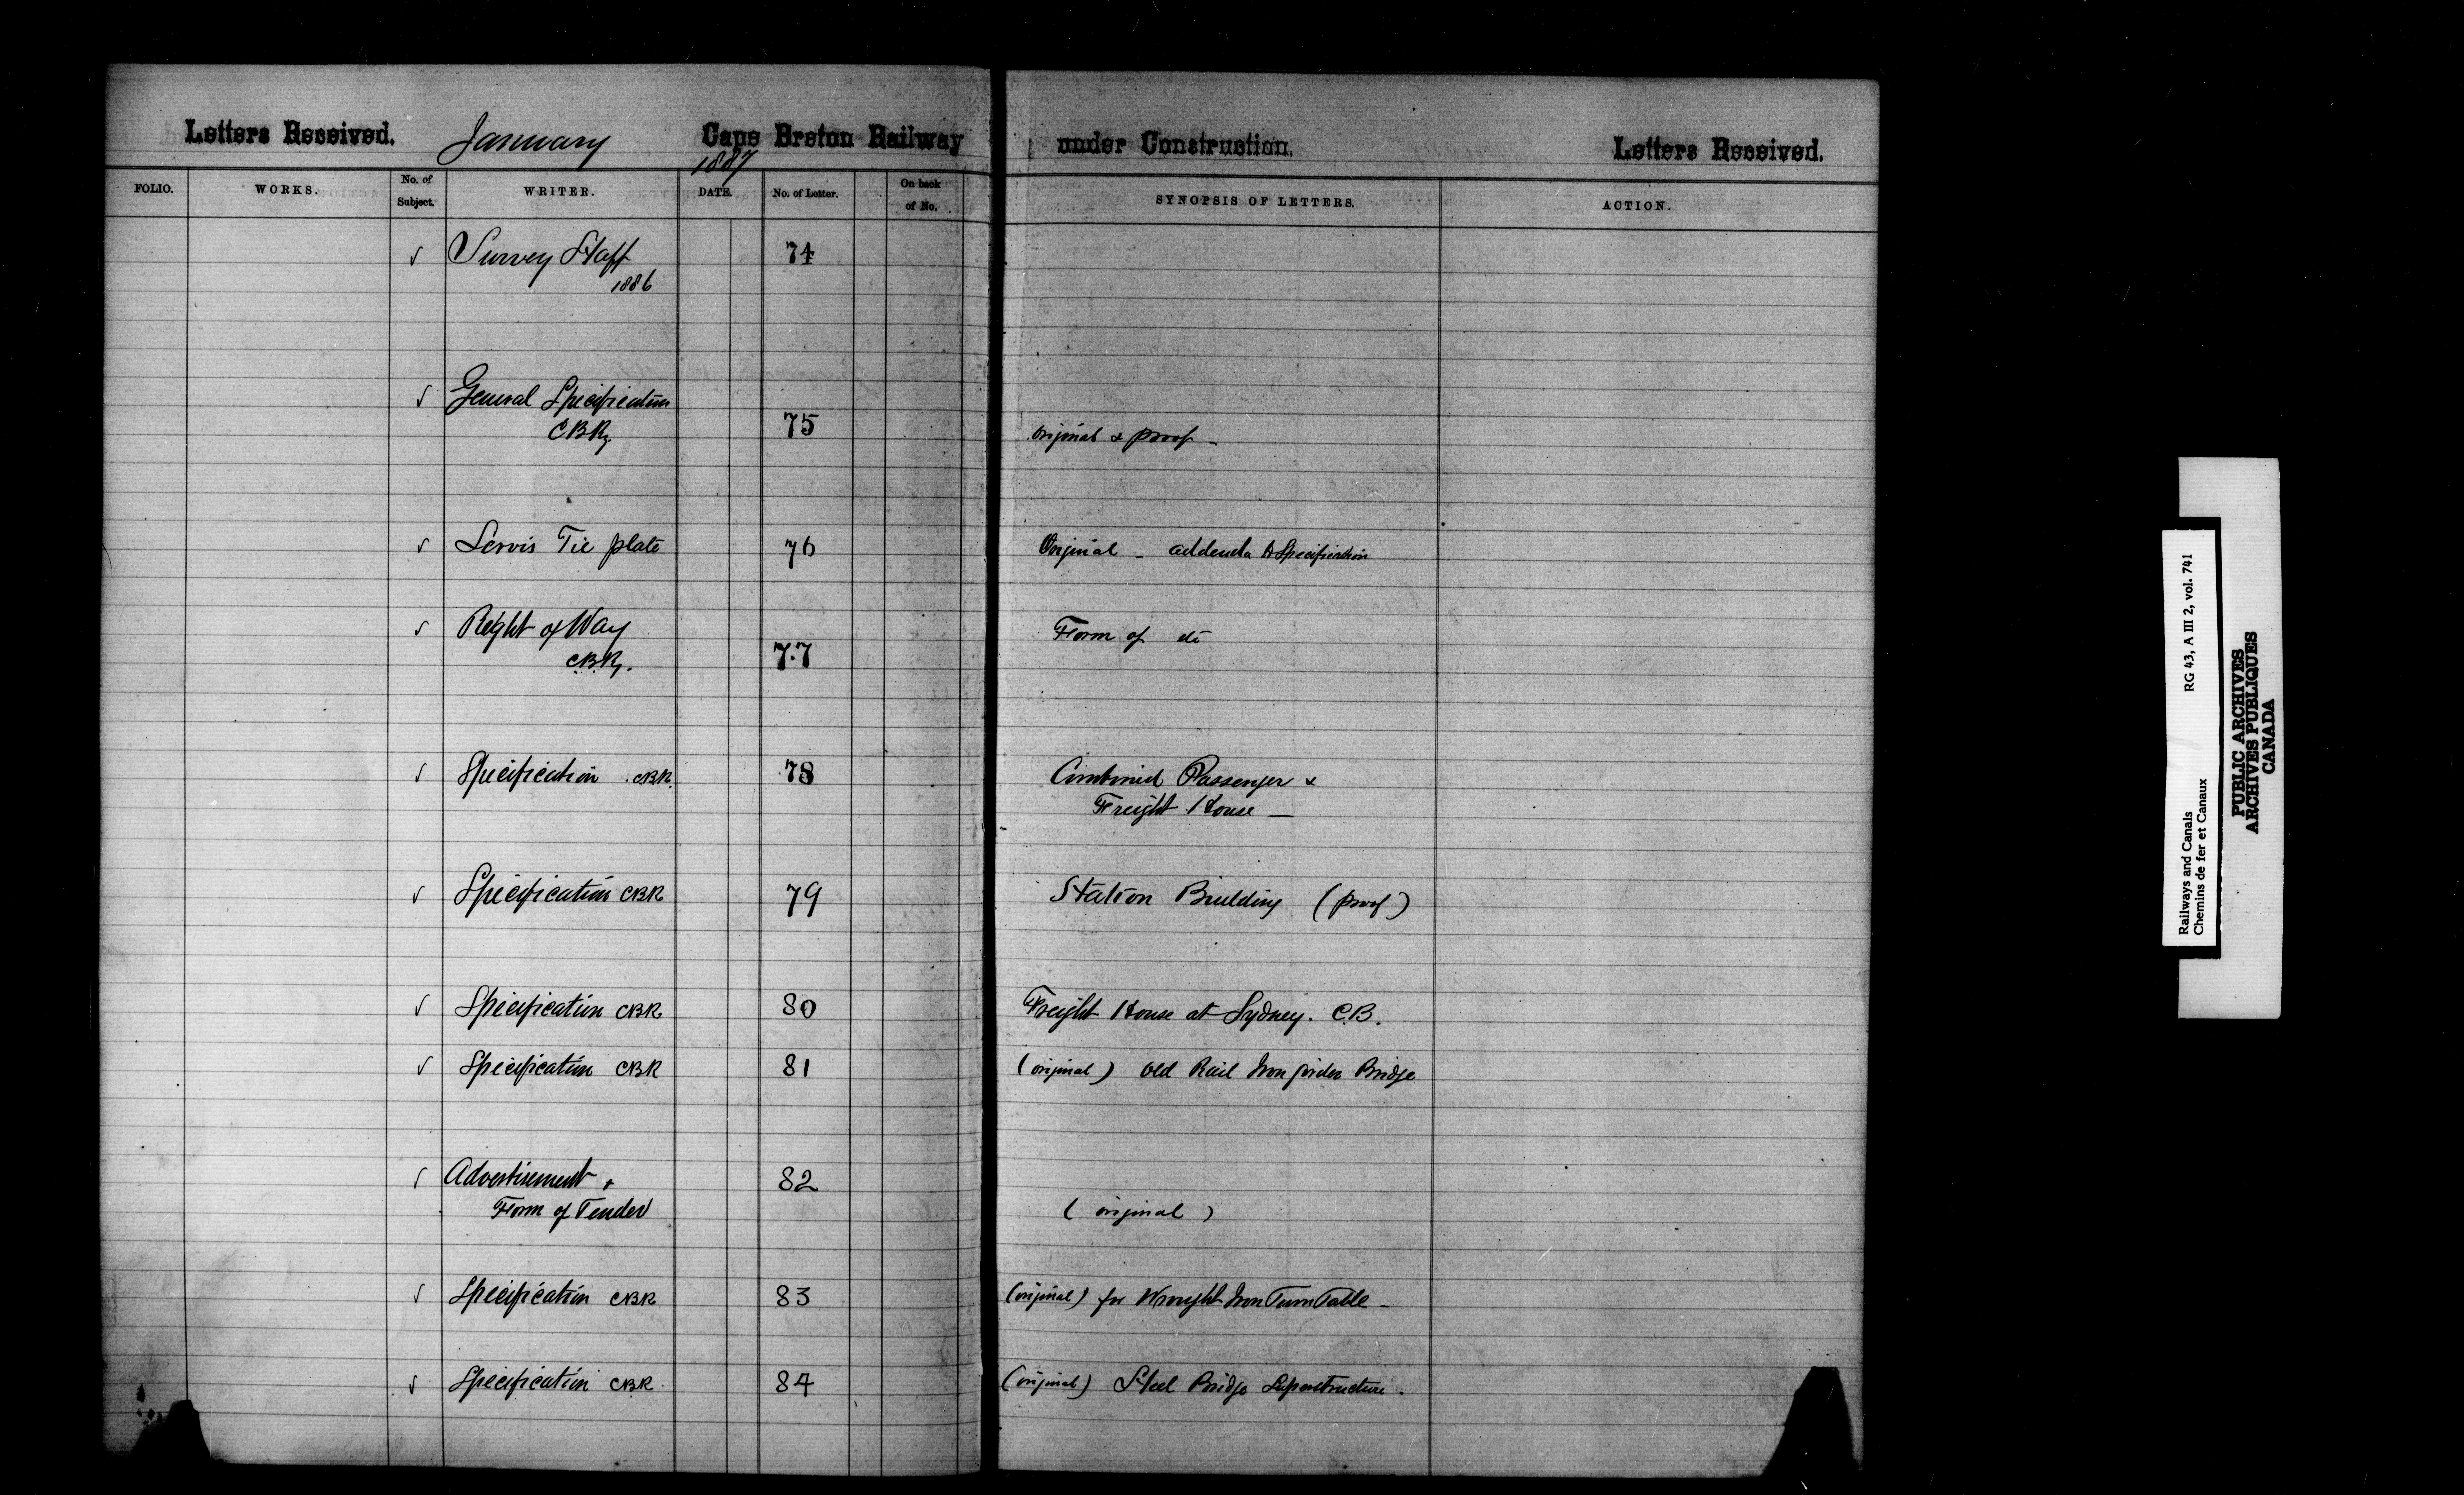 Letters Received. January Cape Breton Railway under Construction. Letters Received.
1887
FOLIO. WORKS. No. of Subject. WRITER. DATE. No. of Letter. On back of No. SYNOPSIS OF LETTERS. ACTION.
√ Survey Staff 74
1886
√ General Specification
CBRy 75 original & proof -
√ Servis Tie plate 76 Original - addenda to Specification
√ Right of Way Form of do
CBRy. 77
√ Specification CBR. 78 Combined Passenger &
Freight House —
√ Specification CBR 79 Station Building (proof)
√ Specification CBR 80 Freight House at Sydney. C.B.
√ Specification CBR 81 (original) Old Rail Iron girder Bridge
√ Advertisement & 82
Form of Tender (original)
√ Specification CBR 83 (original) for Wrought Iron Turn Table -
√ Specification CBR 84 (original) Steel Bridge Superstructure.
Railways and Canals RG 43, A III 2, vol. 741
Chemins de fer et Canaux
PUBLIC ARCHIVES
ARCHIVES PUBLIQUES
CANADA